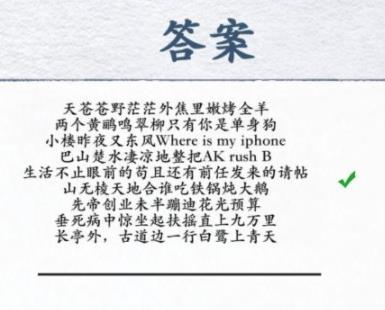 答案
天苍苍野茫茫外焦里嫩烤全羊
两个黄鹂鸣翠柳只有你是单身狗
小楼昨夜又东风Where is my iphone
巴山楚水凄凉地整把AK rush B
生活不止眼前的苟且还有前任发来的请帖
山无棱天地合谁吃铁锅炖大鹅
先帝创业未半蹦迪花光预算
垂死病中惊坐起扶摇直上九万里
长亭外，古道边一行白鹭上青天